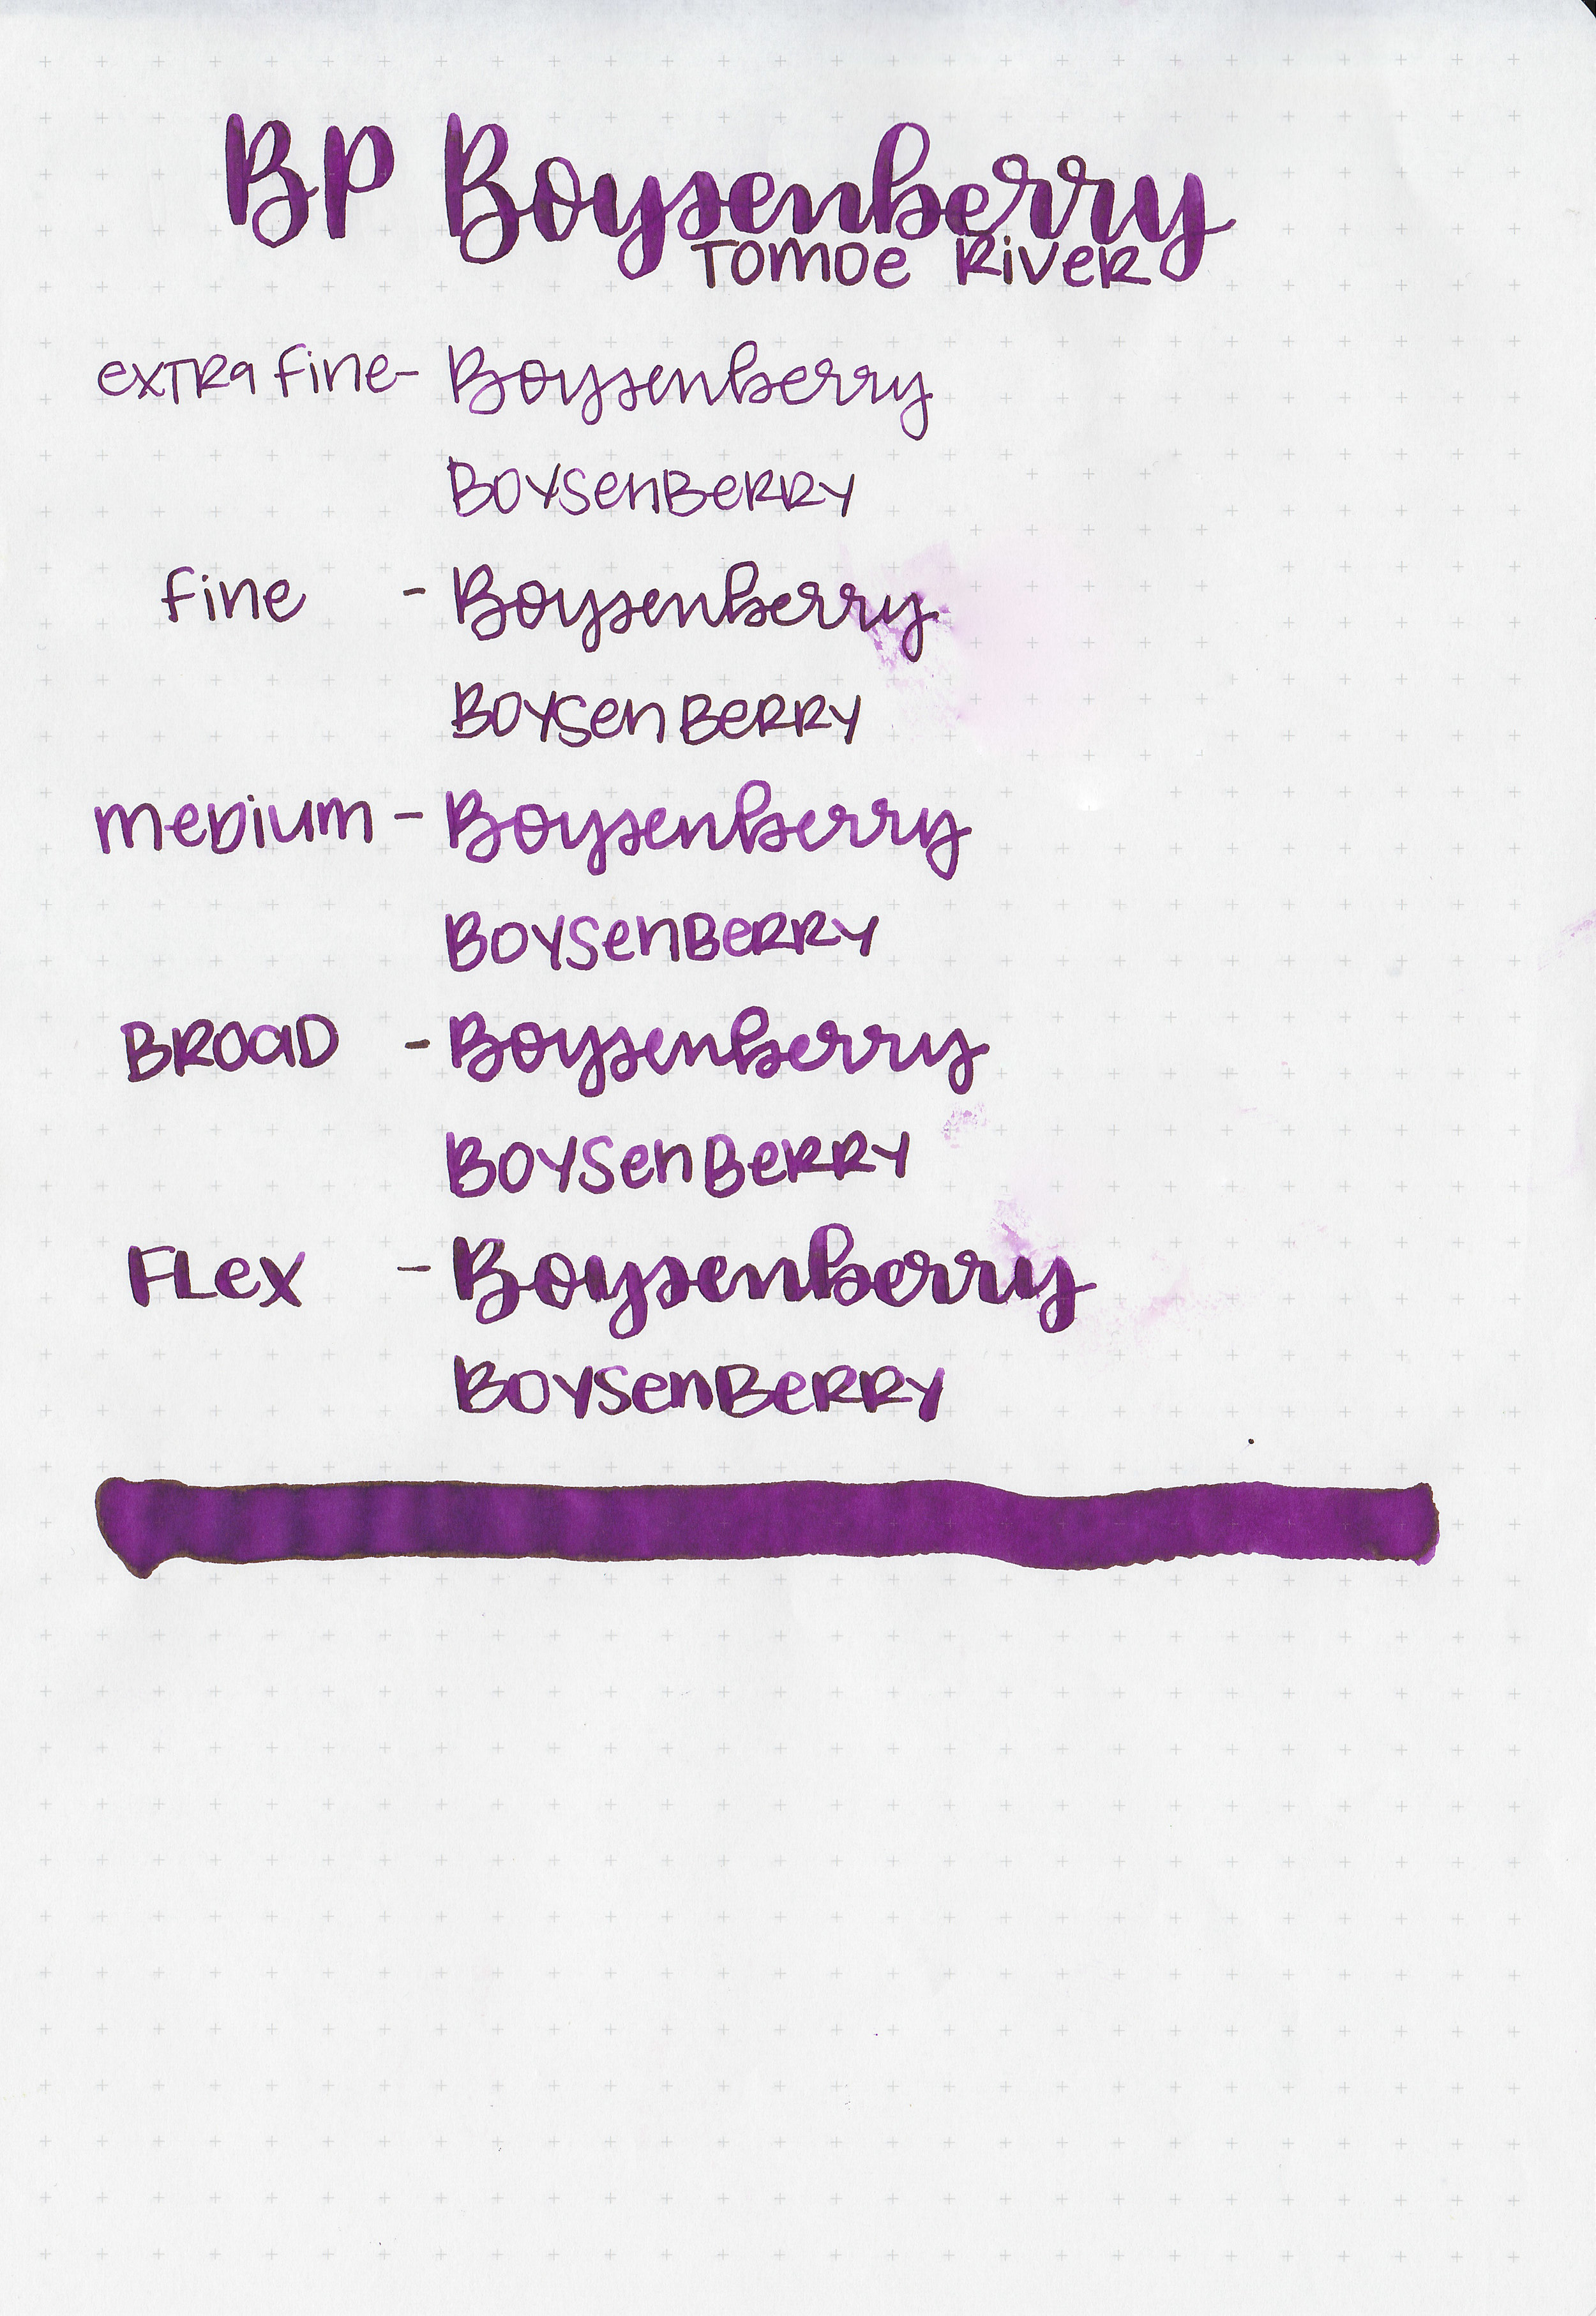 BP Boysenberry
Tomoe River
extra fine- Boysenberry
Boysenberry
fine - Boysenberry
Boysenberry
medium - Boysenberry
Boysenberry
Broad - Boysenberry
Boysenberry
Flex - Boysenberry
Boysenberry